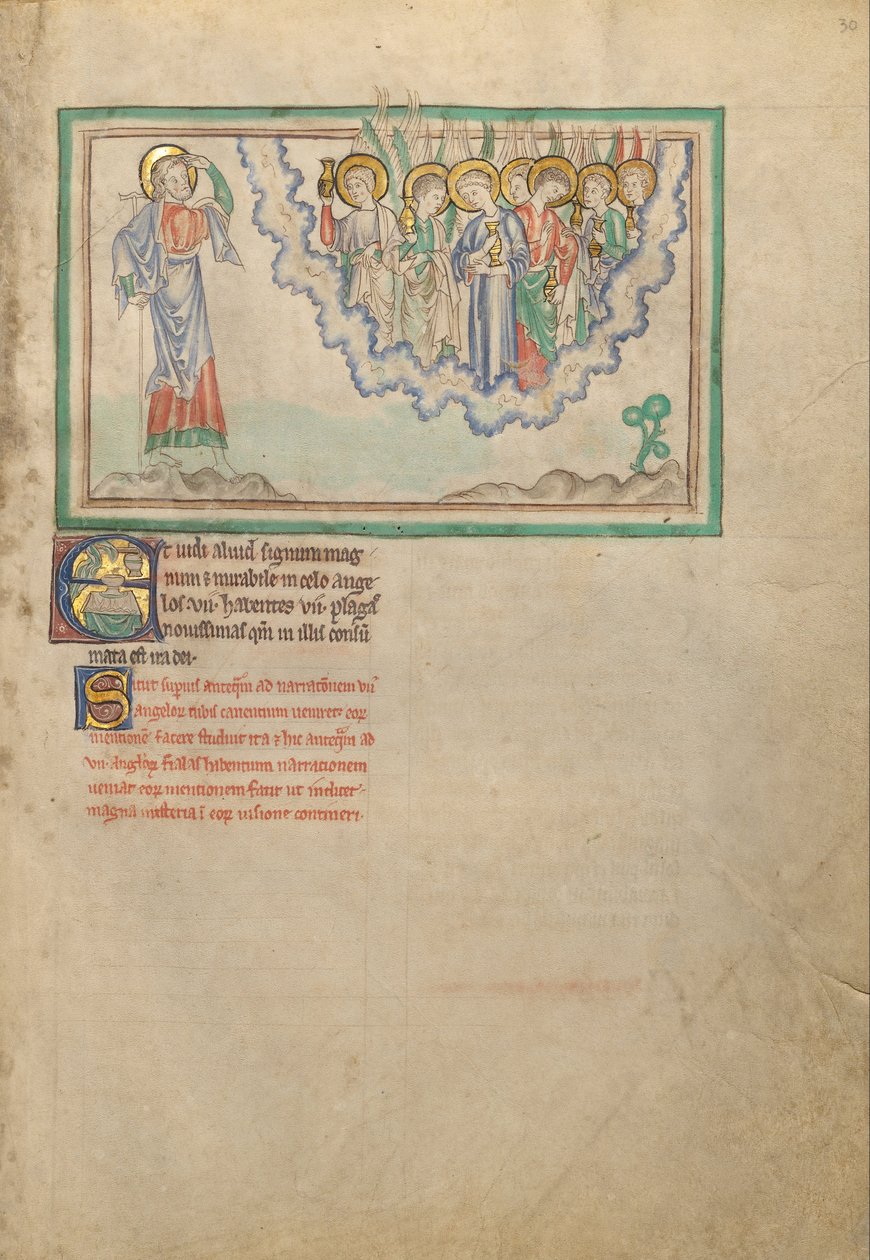 30
Et uidi aliud signum mag
num & mirabile in celo ange
los .vii. habentes .vii. plagas
nouissimas qm̄ in illis consū
mata est ira dei.
Sicut superius anteqm̄ ad narratōnem vii
angelorꝝ tubis canentium ueniret eorꝝ
mentionē facere studuit ita ⁊ hic anteqm̄ ad
vii. anglorꝝ fialas habentium narrationem
ueniat eorꝝ mentionem facit ut indicet
magna misteria ī eorꝝ uisione contineri.